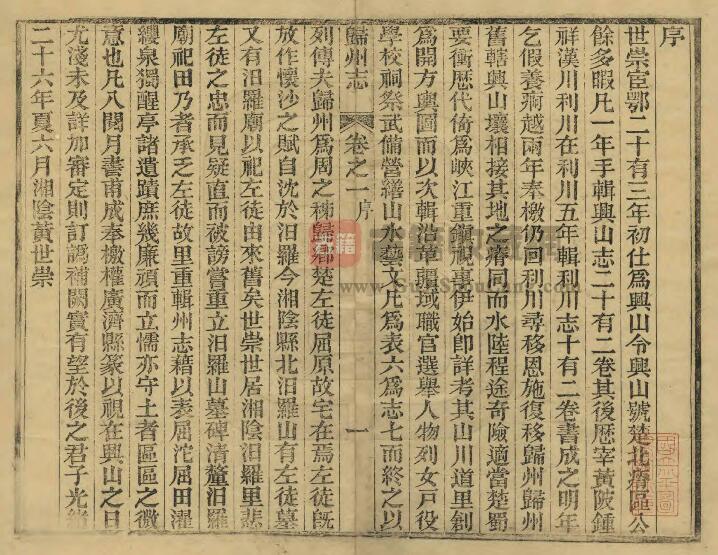 序
世崇宦鄂二十有三年初仕爲興山令興山號楚北瘠區公
餘多暇凡一年手輯興山志二十有二卷其後歷宰黃陂鍾
祥漢川利川在利川五年輯利川志十有二卷書成之明年
乞假養痾越兩年奉檄仍回利川尋移恩施復移歸州歸州
舊轄興山壤相接其地之瘠同而水陸程途奇險適當楚蜀
要衝歷代倚爲峽江重鎮視事伊始卽詳考其山川道里剏
爲開方輿圖而以次輯沿革疆域職官選舉人物列女戸役
學校祠祭武備營繕山水藝文凡爲表六爲志七而終之以
歸州志
卷之一序
一
列傳夫歸州爲周之秭歸鄉楚左徒屈原故宅在焉左徒旣
放作懷沙之賦自沈於汨羅今湘陰縣北汨羅山有左徒墓
又有汨羅廟以祀左徒由來舊矣世崇世居湘陰汨羅里悲
左徒之忠而見疑直而被謗嘗重立汨羅山墓碑清釐汨羅
廟祀田乃者承乏左徒故里重輯州志藉以表屈沱屈田濯
纓泉獨醒亭諸遺蹟庶幾廉頑而立懦亦守土者區區之微
意也凡八閱月書甫成奉檄權廣濟縣篆以視在興山之日
尤淺未及詳加審定則訂譌補闕實有望於後之君子光緒
二十六年夏六月湘陰黃世崇
書籍
www.SunShouFang.com